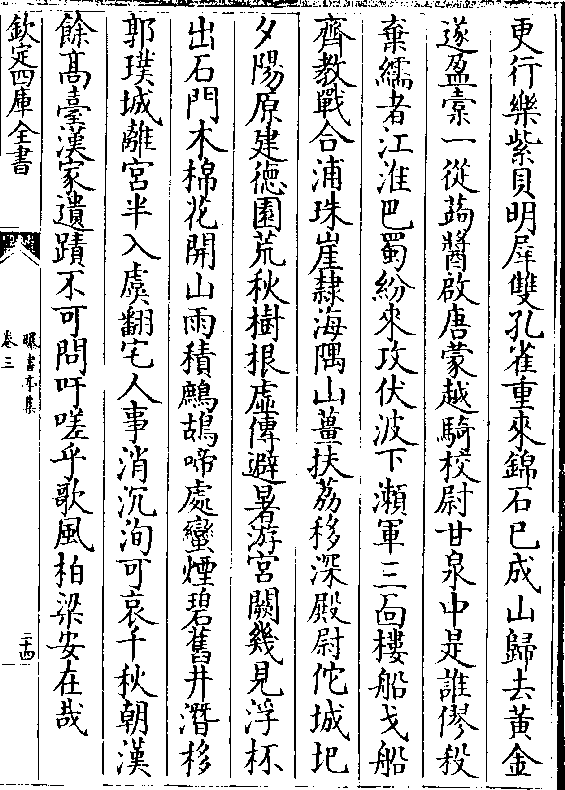 更行樂紫貝明犀雙孔雀重來錦石已成山歸去黃金
遂盈橐一從蒟醬啟唐蒙越騎校尉甘泉中是誰僇殺
棄繻者江淮巴蜀紛來攻伏波下瀨軍三面樓船戈船
齊教戰合浦珠崖隸海隅山薑扶荔移深殿尉佗城圯
夕陽原建德園荒秋樹根虛傳避暑游宮闕幾見浮杯
出石門木棉花開山雨積鷓鴣啼處蠻煙碧舊井潛移
郭璞城離宮半入虞翻宅人事消沉洵可哀千秋朝漢
餘髙臺漢家遺蹟不可問吁嗟乎歌風柏梁安在哉
欽定四庫全書
曝書亭集
卷三